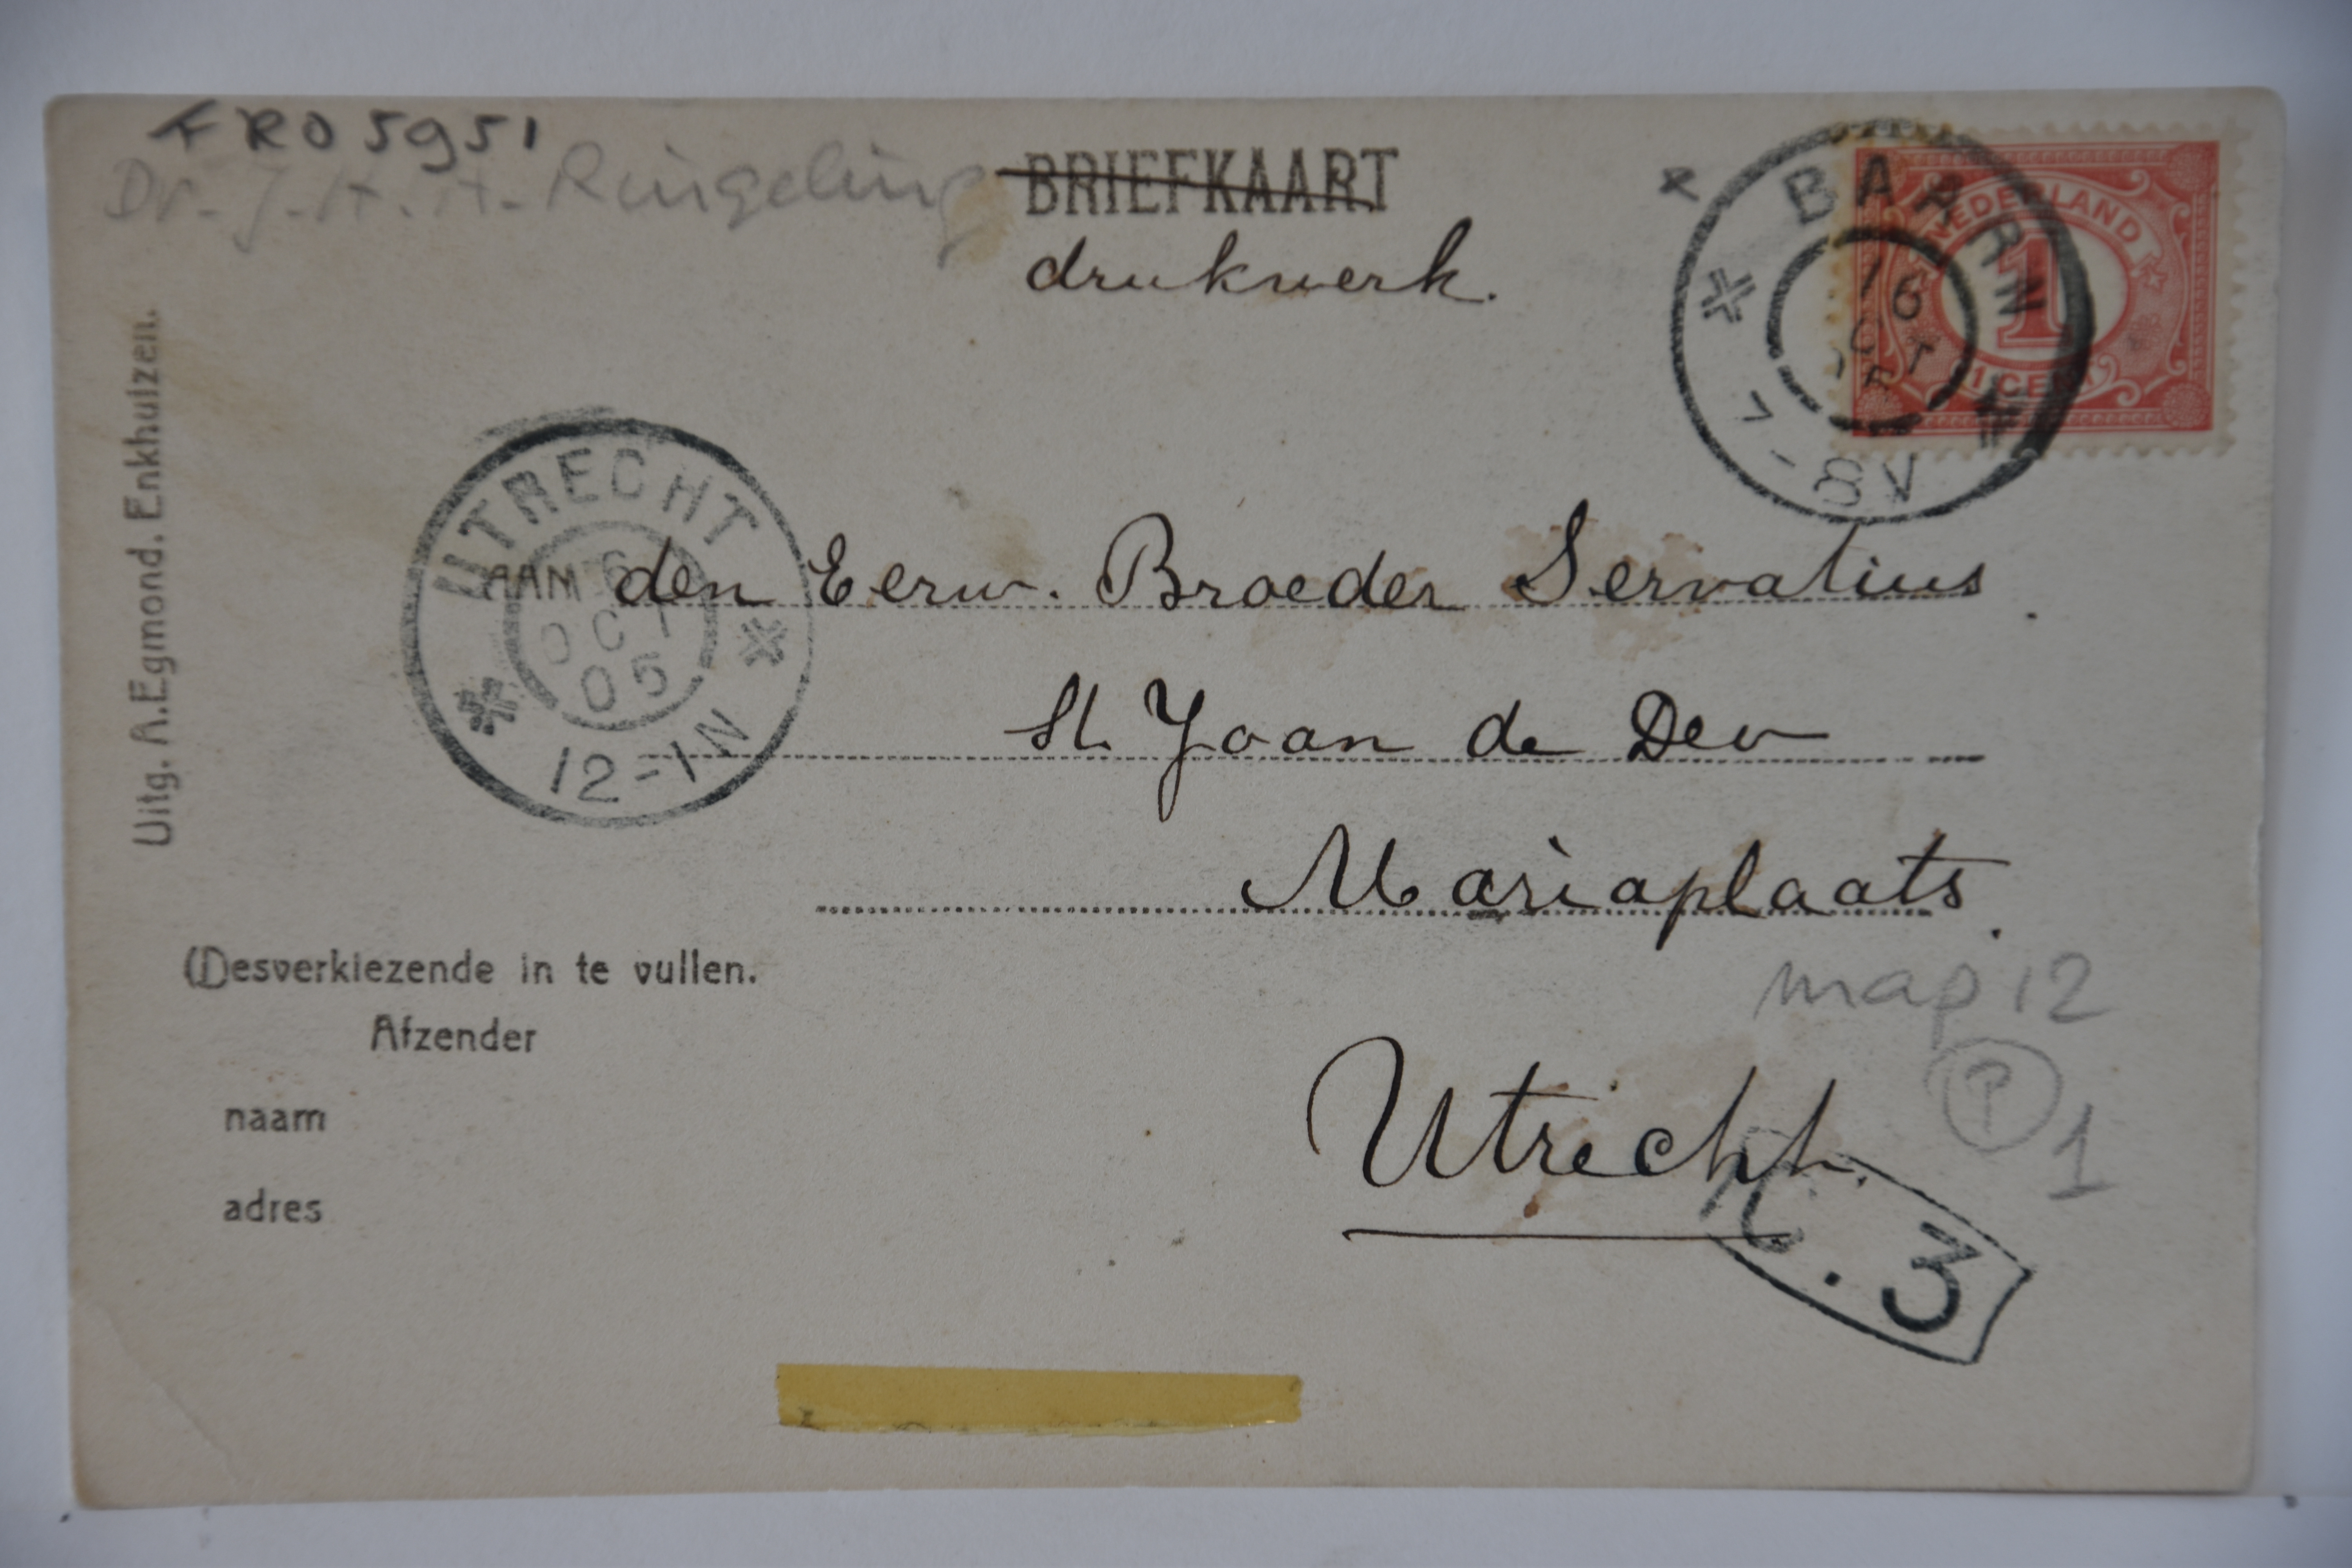 FRO5951
Dr. J.H.H. Ringeling
BRIEFKAART
drukwerk.
BAARN
16
OCT
7-8V
NEDERLAND
1
1 CENT
Uitg. A. Egmond. Enkhuizen.
UTRECHT
OCT
05
12-1N
AAN den Eerw. Broeder Servatius.
St Joan de Deo
Mariaplaats.
Utrecht.
map 12
P
1
3
Desverkiezende in te vullen.
Afzender
naam
adres